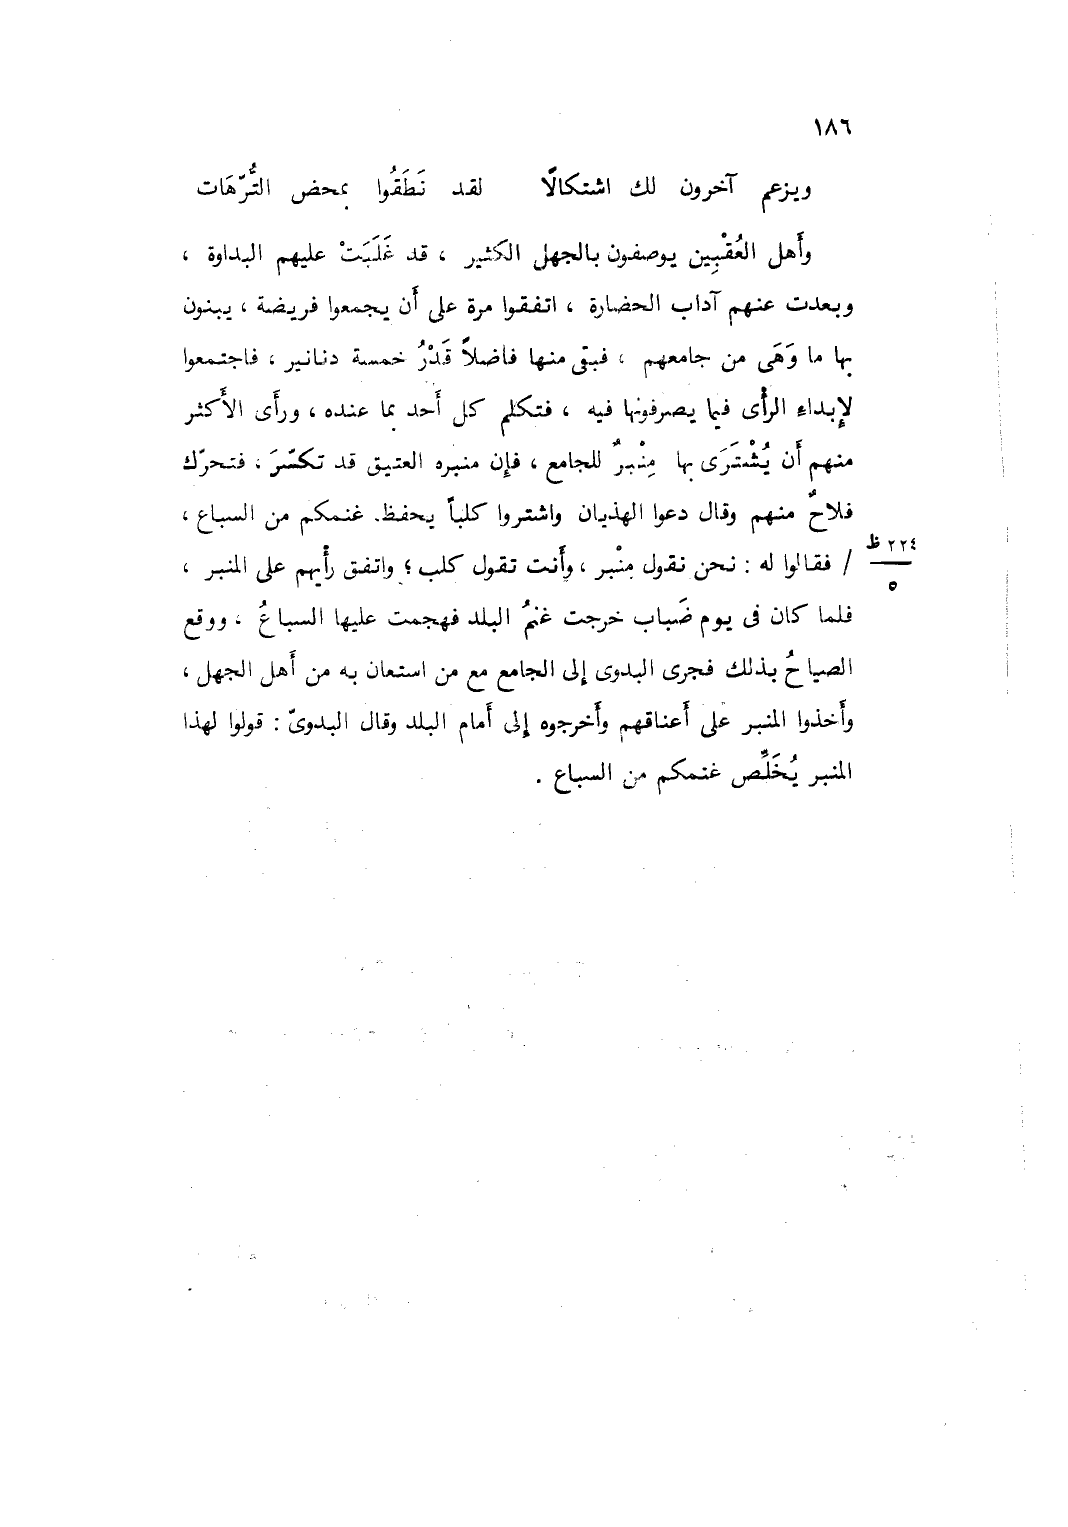 ١٨٦
ويزعم آخرون لك اشتكالًا لقد نَطَقُوا بمحض التُّرّهَات
وأَهل العُقْبِين يوصفون بالجهل الكثير ، قد غَلَبَتْ عليهم البداوة ،
وبعدت عنهم آداب الحضارة ، اتفقوا مرة على أَن يجمعوا فريضة ، يبنون
بها ما وَهَى من جامعهم ، فبقى منها فاضلاً قَدْرُ خمسة دنانير ، فاجتمعوا
لإِبداءِ الرأْى فيما يصرفونها فيه ، فتكلم كل أَحد بما عنده ، ورأَى الأَكثر
منهم أَن يُشْتَرَى بها مِنْبرٌ للجامع ، فإِن منبره العتيق قد تكسّرَ ، فتحرّك
فلاحٌ منهم وقال دعوا الهذيان واشتروا كلباً يحفظ غنمكم من السباع ،
/ فقالوا له : نحن نقول مِنْبر ، وأَنت تقول كلب ؛ واتفق رأْيهم على المنبر ،
٢٢٤ ظ
٥
فلما كان فى يوم ضَباب خرجت غنمُ البلد فهجمت عليها السباعُ ، ووقع
الصياحُ بذلك فجرى البدوى إِلى الجامع مع من استعان به من أَهل الجهل ،
وأَخذوا المنبر على أَعناقهم وأَخرجوه إِلى أَمام البلد وقال البدوىّ : قولوا لهذا
المنبر يُخَلِّص غنمكم من السباع .